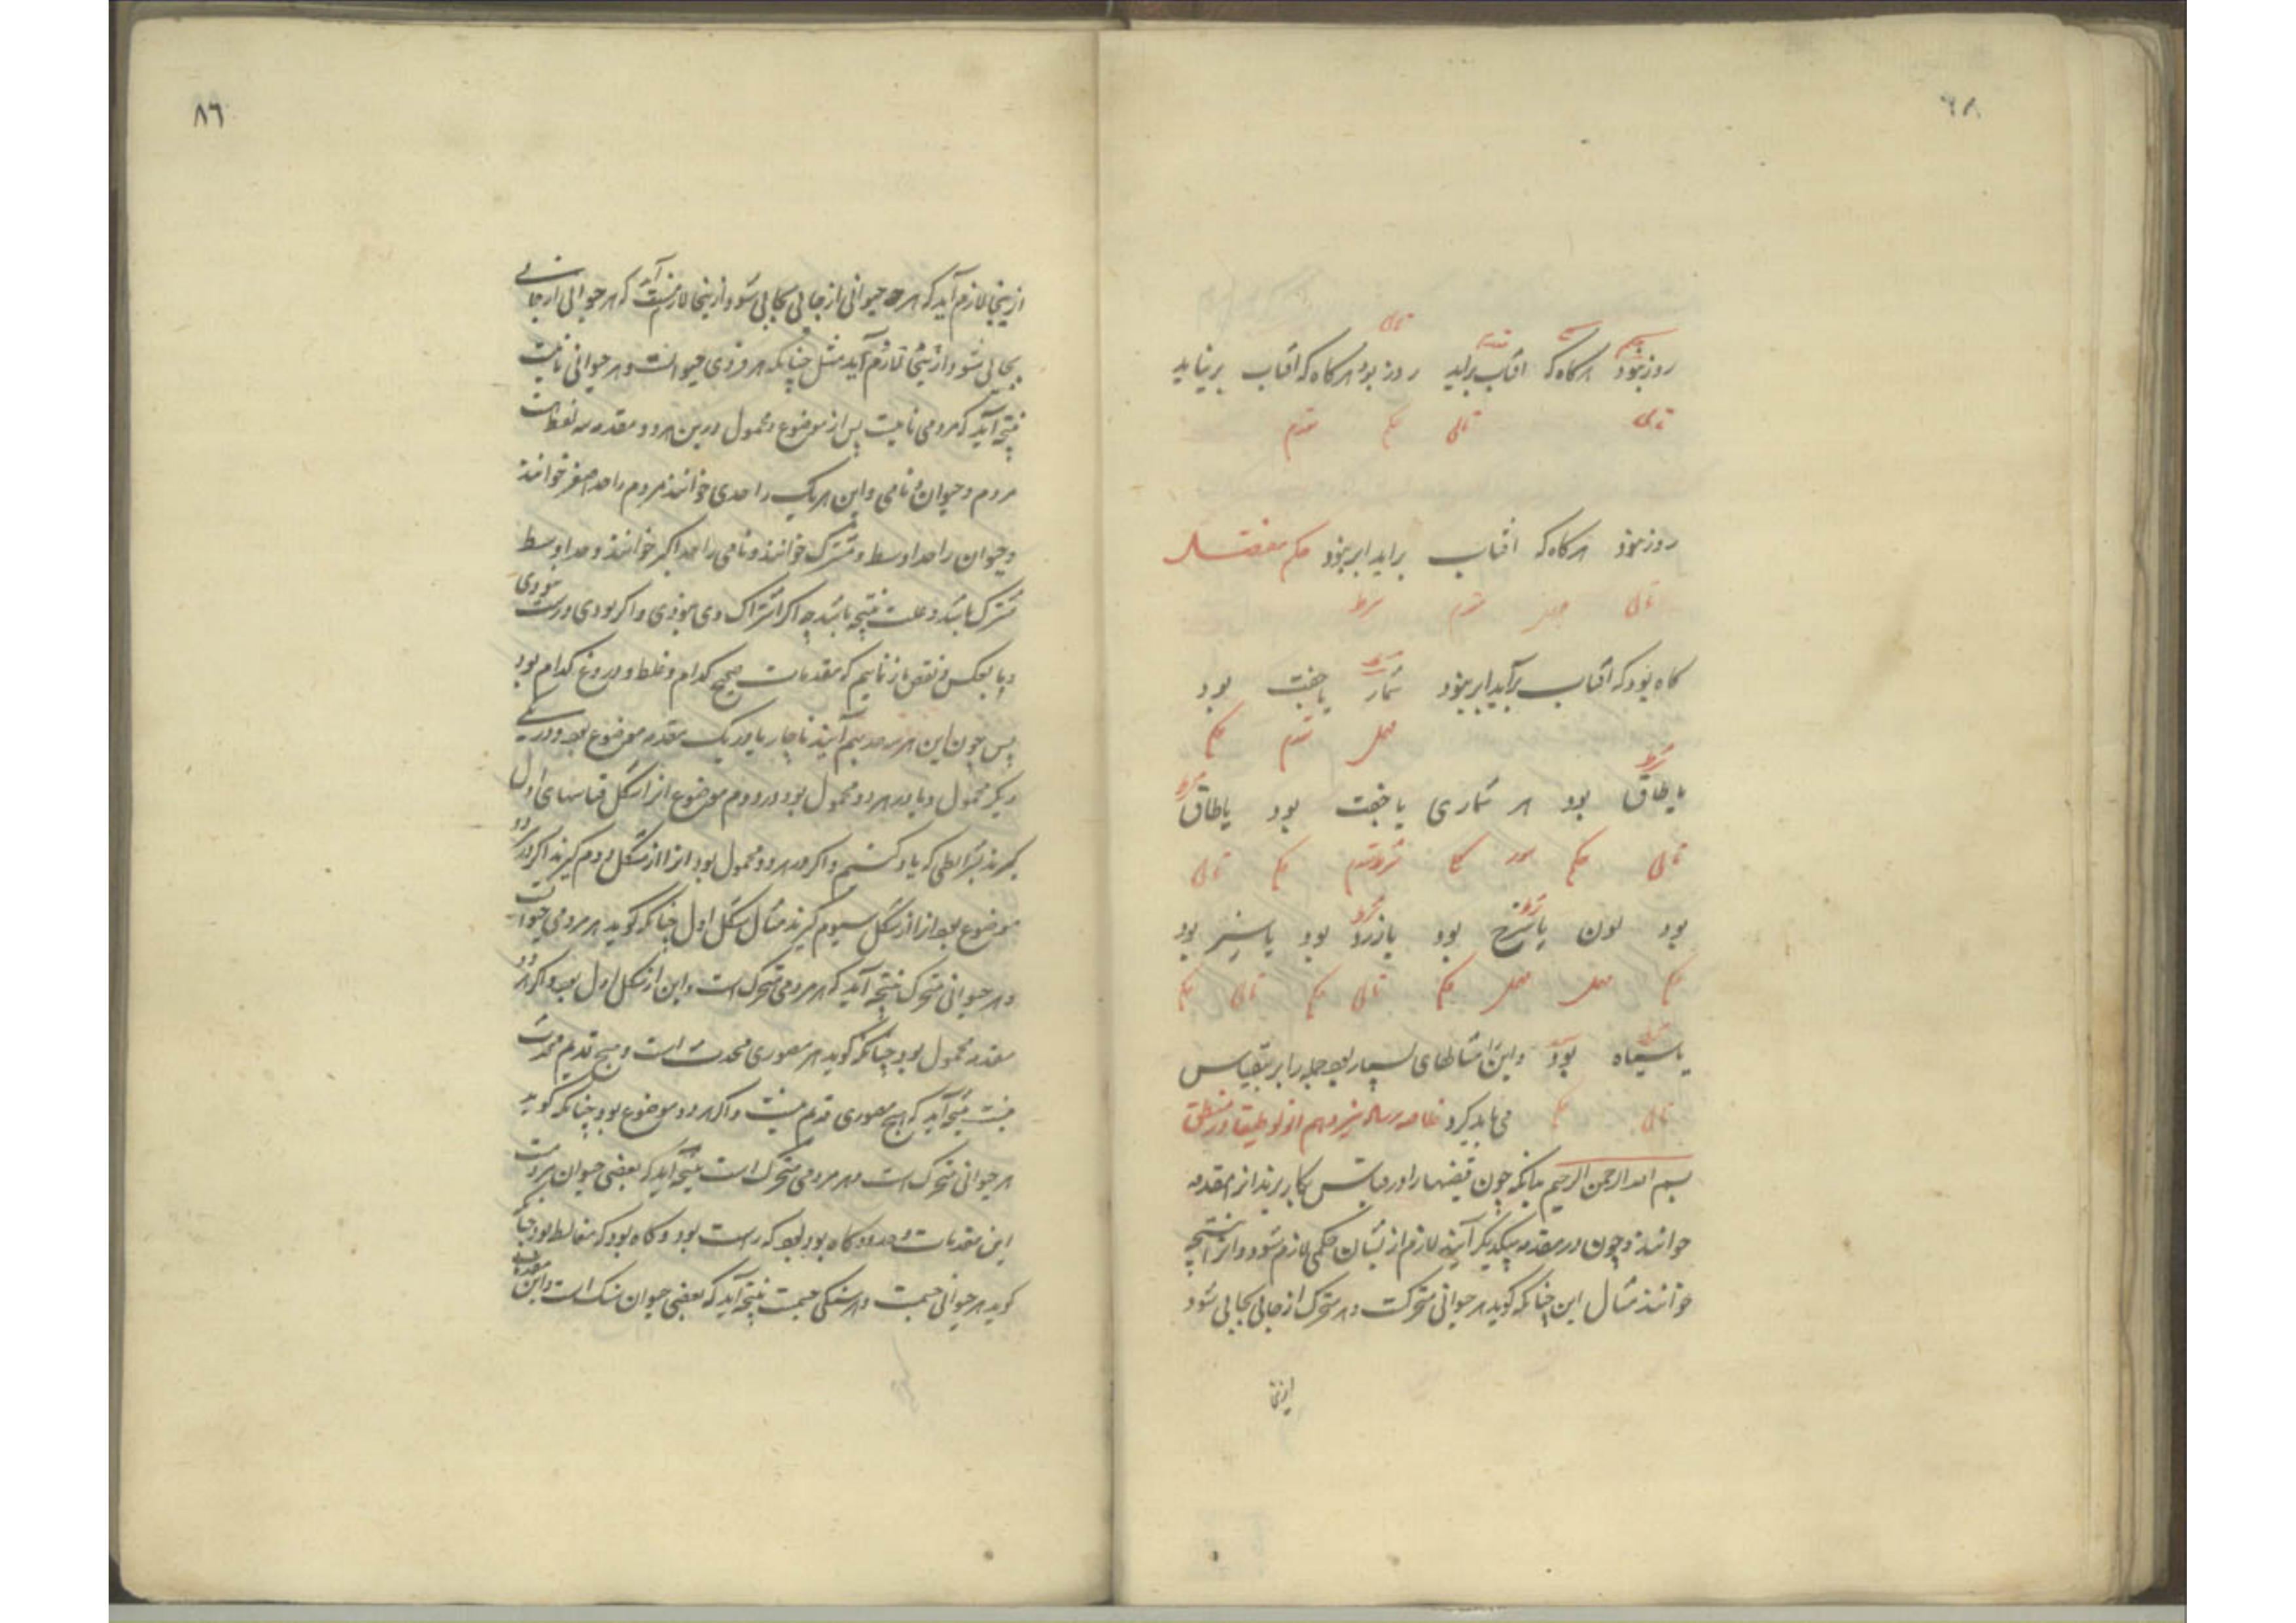 روز نبود هرگاه که آفتاب برآید روز بود هرگاه که آفتاب برنیاید
تالی تالی حکم مقدم
روز نبود هرگاه که آفتاب براید ابر نبود حکم منفصل
تالی مقدم شرط
گاه بود که آفتاب برآید ابر نبود شمار یا جفت بود
مهمل مقدم حکم
شرط
یا طاق بود هر شماری یا جفت بود یا طاق
تالی حکم سور کلی حکم تالی
بود لون یا سرخ بود یا زرد بود یا سبز بود
حکم مهمل حکم تالی حکم تالی حکم
یا سیاه بود واین بسیار بود جمله را برین قیاس
تالی حکم می باید کرد رساله سیزدهم انولوطیقا در منطق
بسم الله الرحمن الرحیم بدانکه چون قضیها را در قیاس بکار برند انرا مقدمه
خوانند و چون دو مقدمه بیکدیگر آیند لازم از ایشان حکمی لازم شود و انرا نتیجه
خوانند مثال این چنانکه گوید هر حیوانی متحرکست و هر متحرک از جایی بجایی شود
ازینجا
٨٦
ازینجا لازم آید که هر حیوانی از جایی بجایی شود و ازینجا لازم نیست آید که هر حیوانی از جایی
بجایی شود و ازینجا لازم آید مثل چنانکه هر مردمی حیوانست و هر حیوانی نامیست
نتیجه آید که مردمی نامیست پس از موضوع و محمول درین هر دو مقدمه سه لفظ است
مردم و حیوان و نامی و این هر یک را حدی خوانند مردم را حد اصغر خوانند
و حیوان را حد اوسط و مشترک خوانند و نامی را حد اکبر خوانند و حد اوسط
مشترک باشد و علت نتیجه باشد چه اگر اشتراک وی نبودی و اگر بودی درست نبودی
و با بعکس و نقض باز نماییم که مقدمات صحیح کدام و غلط و دروغ کدام بود
پس چون این هر سه حد بهم آیند ناچار یا در یک مقدمه موضوع بود و در
دیگر محمول و یا در هر دو محمول بود در دوم موضوع انرا شکل قیاسهای اول
گیرند بشرایطی که یاد کنیم و اگر در هر دو محمول بود انرا از شکل دوم گیرند اگر در دو
موضوع بود انرا از شکل سیوم گیرند مثال شکل اول چنانکه گوید هر مردمی حیوانست
و هر حیوانی متحرک نتیجه آید که هر مردمی متحرک است و این از شکل اول بود و اگر در دو
مقدمه محمول بود چنانکه گوید هر مصوری محدث است و هیچ قدیم محدث
نیست نتیجه آید که هیچ مصوری قدیم نیست و اگر هر دو موضوع بود چنانکه گوید
هر حیوانی متحرک است و هر مردمی متحرک است نتیجه آید که بعضی حیوان مردمست
این مقدمات گاه بود که راست بود و گاه بود که مغالطه بود چنانکه
گوید هر حیوانی جسمست و هر سنگی جسمست نتیجه آید که بعضی حیوان سنگ است و این مقدمه